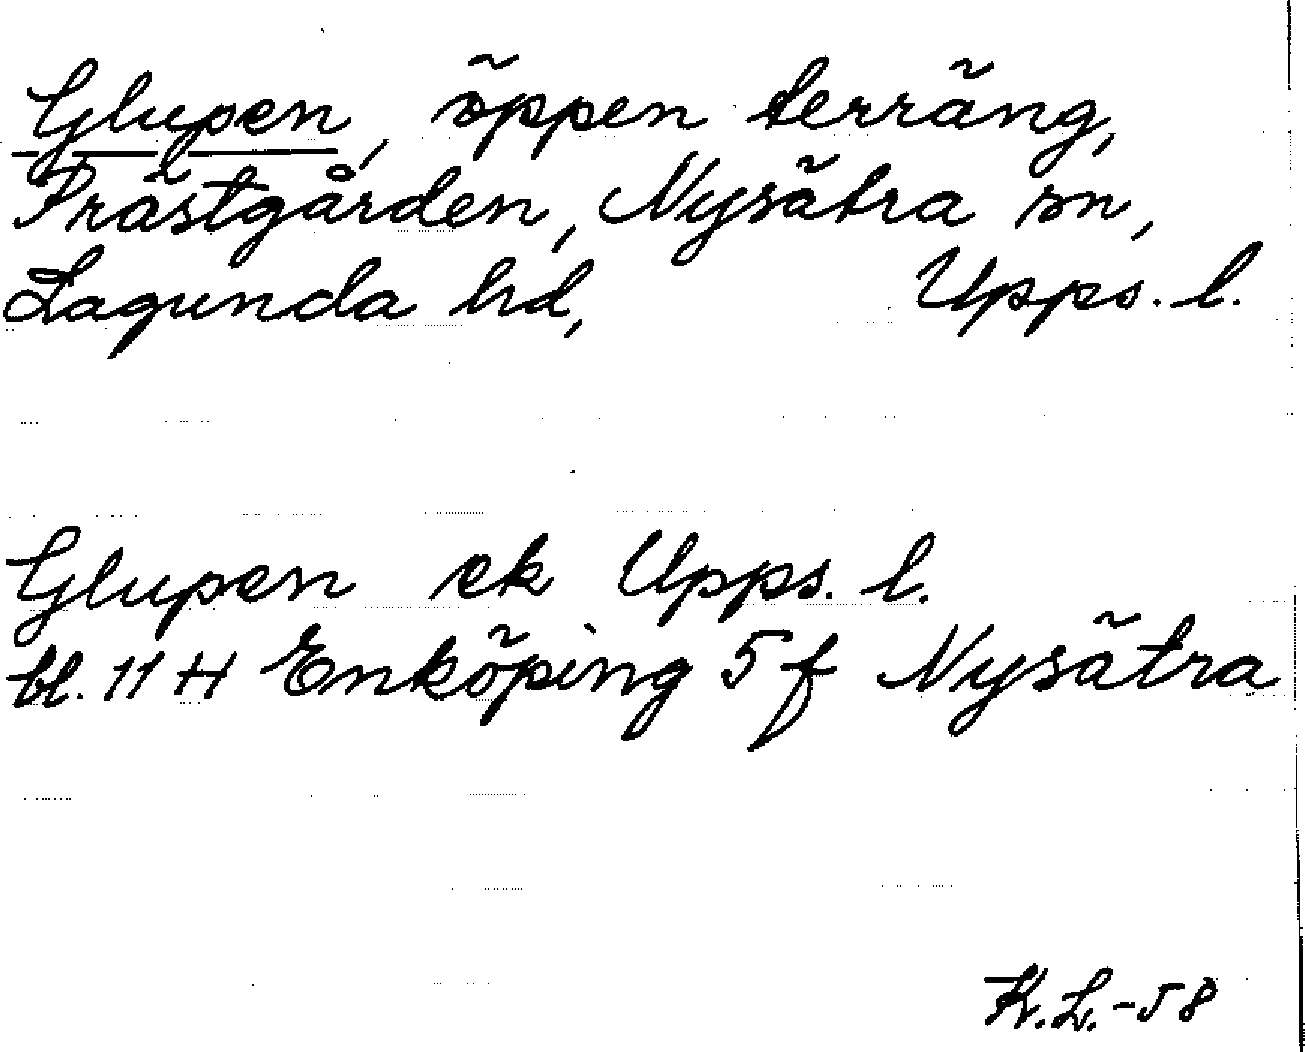 Glupen, öppen terräng,
Prästgården, Nysätra sn,
Lagunda hd, Upps. l.
Glupen ek Upps. l.
bl. 11 H Enköping 5 f Nysätra
K.L.-58